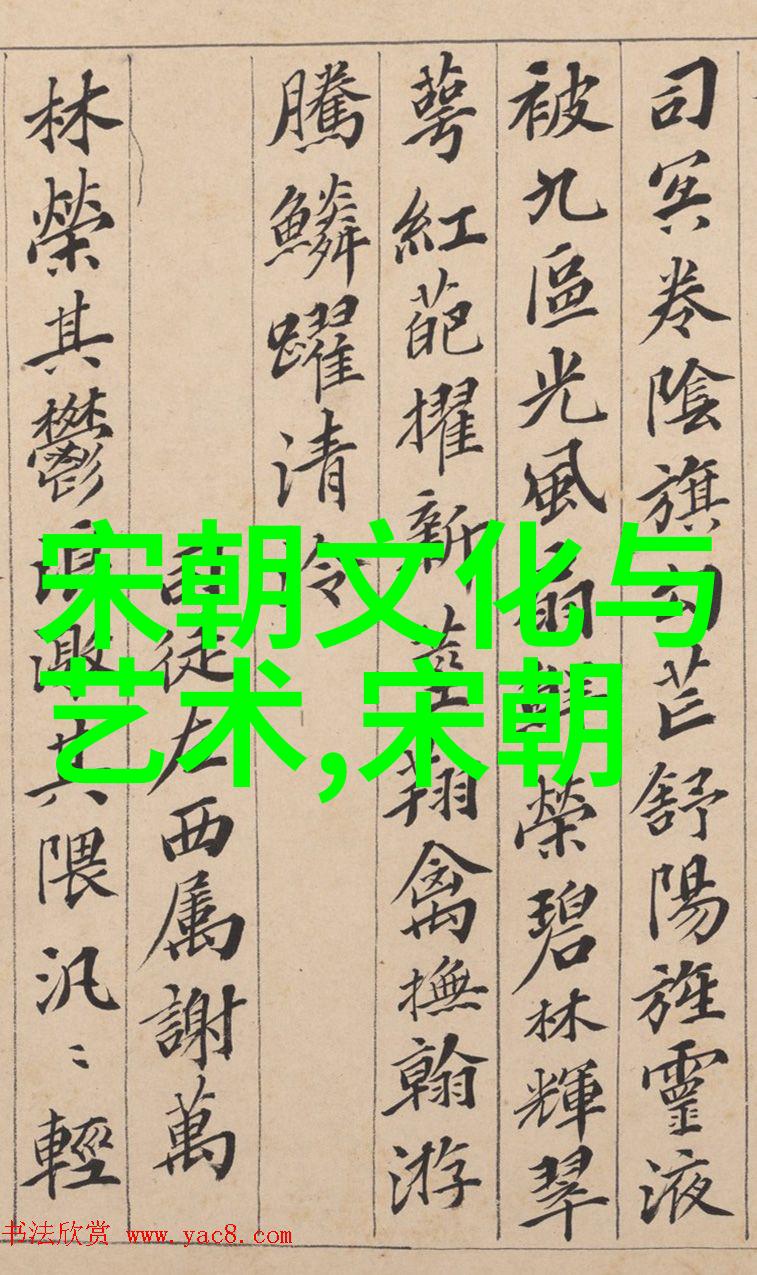 司冥卷陰旗勾芒舒陽旌靈液
被九區光風扇鮮榮碧林輝翠
萼紅葩擢新莖翔禽撫翰游
騰鱗躍清泠
司徒左西属謝萬
林榮其鬱浪激其隈汎〻輕
宋朝文化与
艺术,宋朝
书法欣赏 www.yac8.com